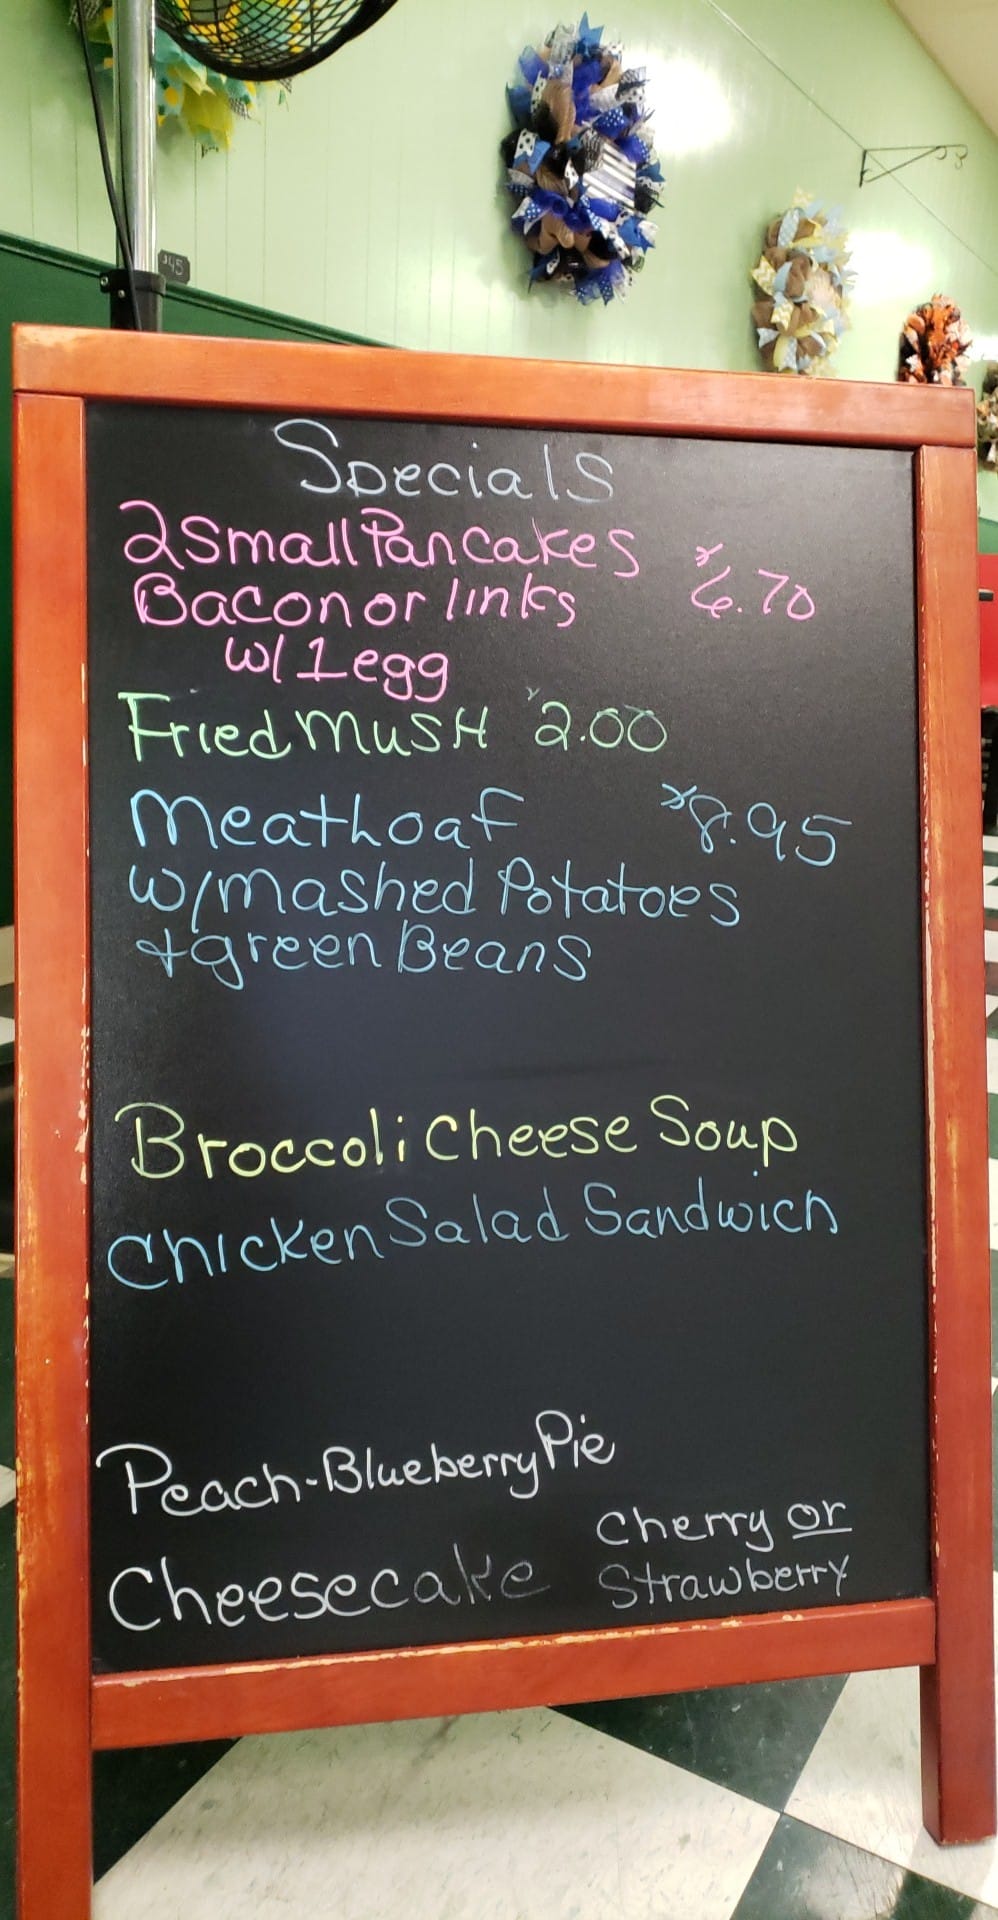 $45
Specials
2 Small Pancakes
Bacon or links $6.70
w/ 1 egg
Fried MusH $2.00
MeatLoaf $8.95
w/mashed Potatoes
+ green Beans
Broccoli Cheese Soup
Chicken Salad Sandwich
Peach-Blueberry Pie
Cheesecake Cherry or
Strawberry